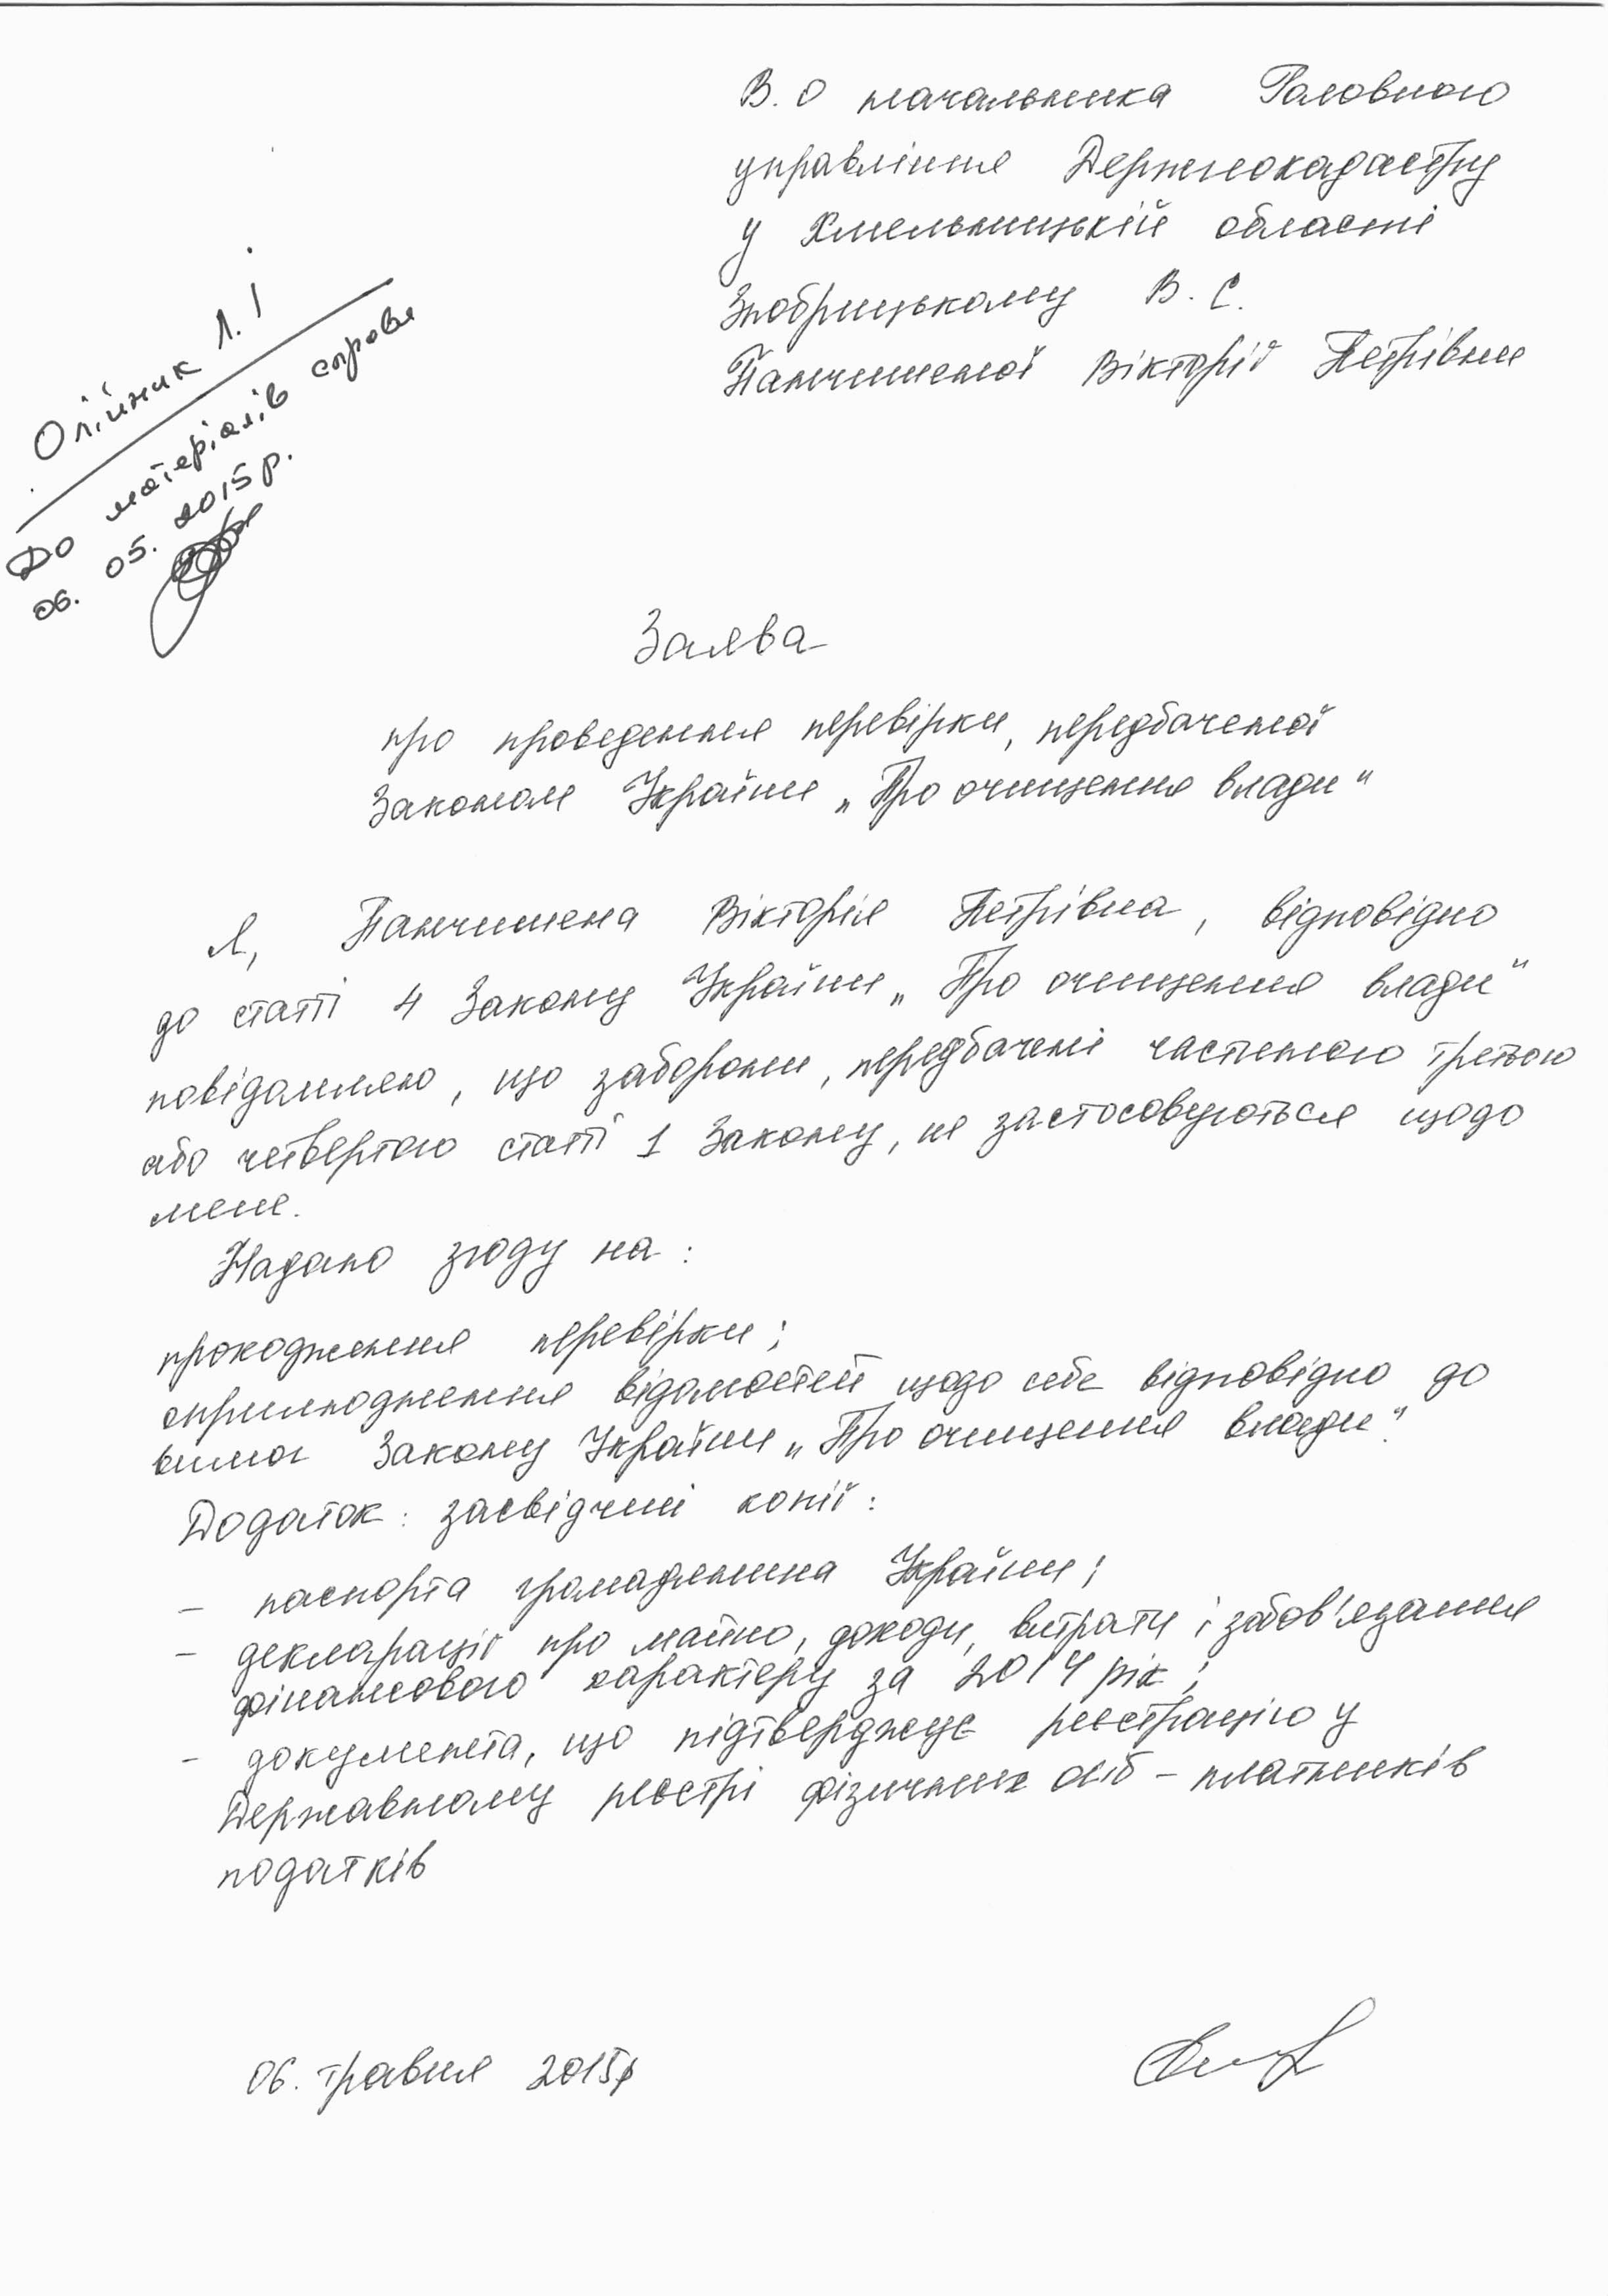 В.о начальника Головного
управління Держгеокадастру
у Хмельницькій області
Знобрицькому В.С.
Панчишеної Вікторії Петрівни
Олійник Л.І
До матеріалів справи
06.05.2015р.
Заява
про проведення перевірки, передбаченої
Законом України „Про очищення влади"
Я, Панчишена Вікторія Петрівна, відповідно
до статті 4 Закону України „Про очищення влади"
повідомляю, що заборони, передбачені частиною третьою
або четвертою статті 1 Закону, не застосовуються щодо
мене.
Надаю згоду на:
проходження перевірки;
оприлюднення відомостей щодо себе відповідно до
вимог Закону України „Про очищення влади".
Додаток: засвідчені копії:
- паспорта громадянина України;
- декларації про майно, доходи, витрати і зобов'язання
фінансового характеру за 2014 рік;
- документа, що підтверджує реєстрацію у
Державному реєстрі фізичних осіб - платників
податків
06. травня 2015р